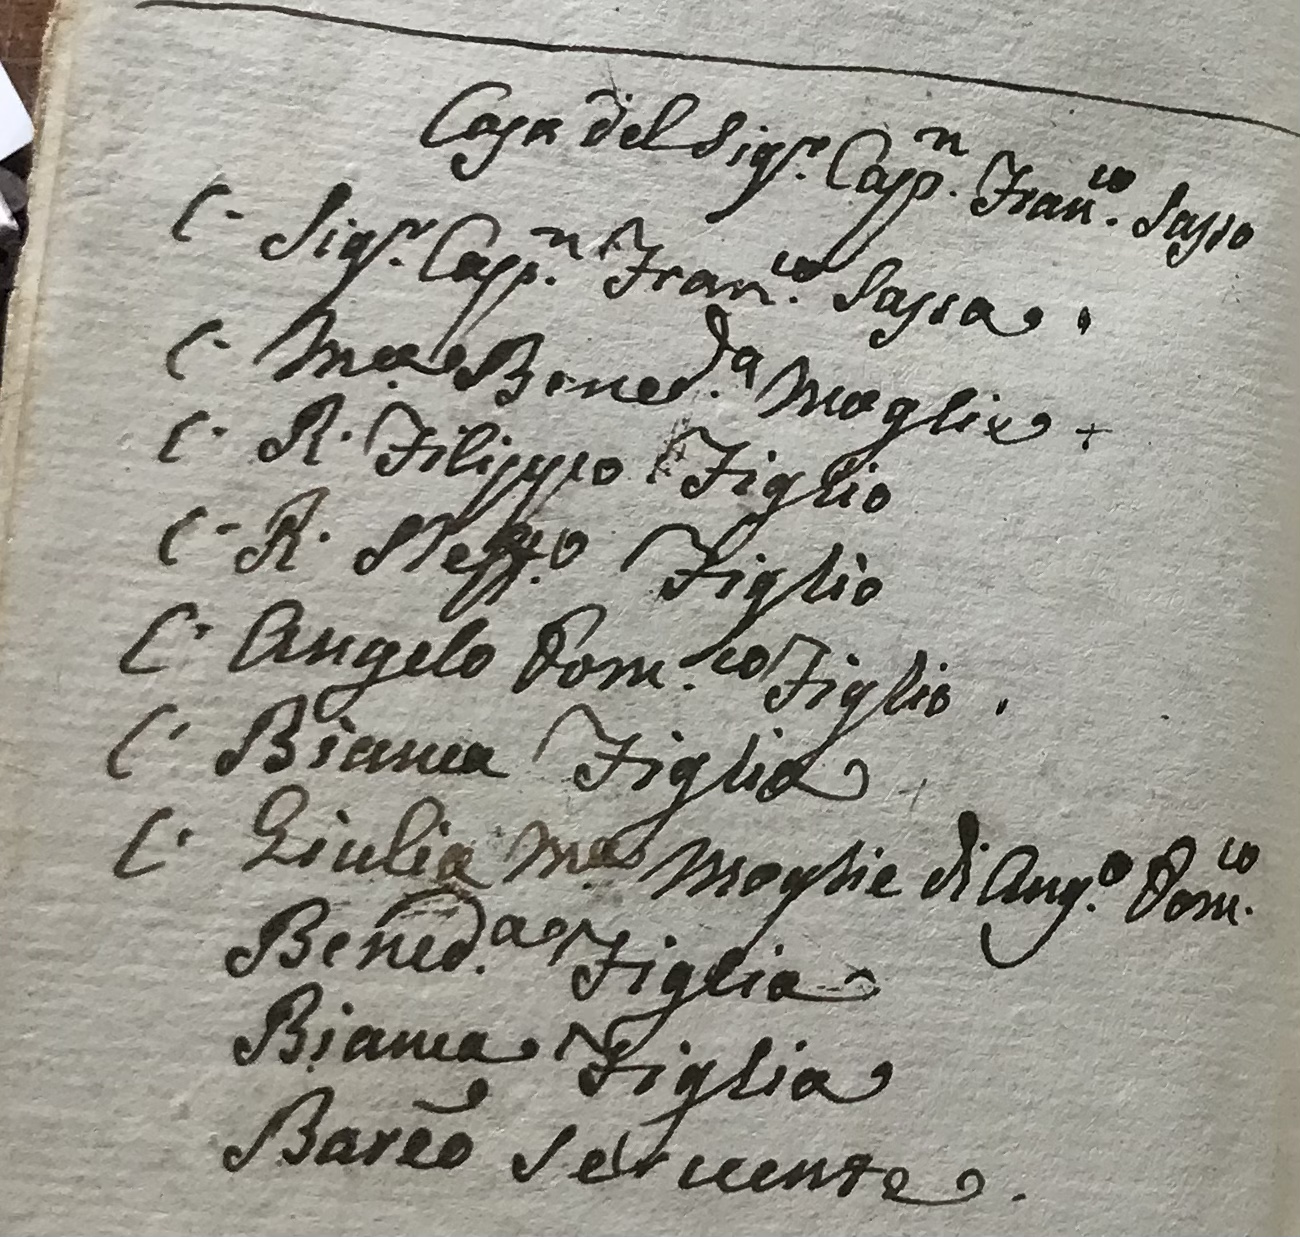 Casa del Sig.r Cap.n Fran.co Sasso
C. Sig.r Cap.n Fran.co Sasso.
C. Ma Bened.a Moglie +
C. R. Filippo Figlio
C. R. Figlio
C. Angelo Dom.co Figlio.
C. Bianca Figlia
C. Giulia Ma Moglie di Ang.o Dom.co
Bened.a Figlia
Bianca Figlia
Bareo Servente.